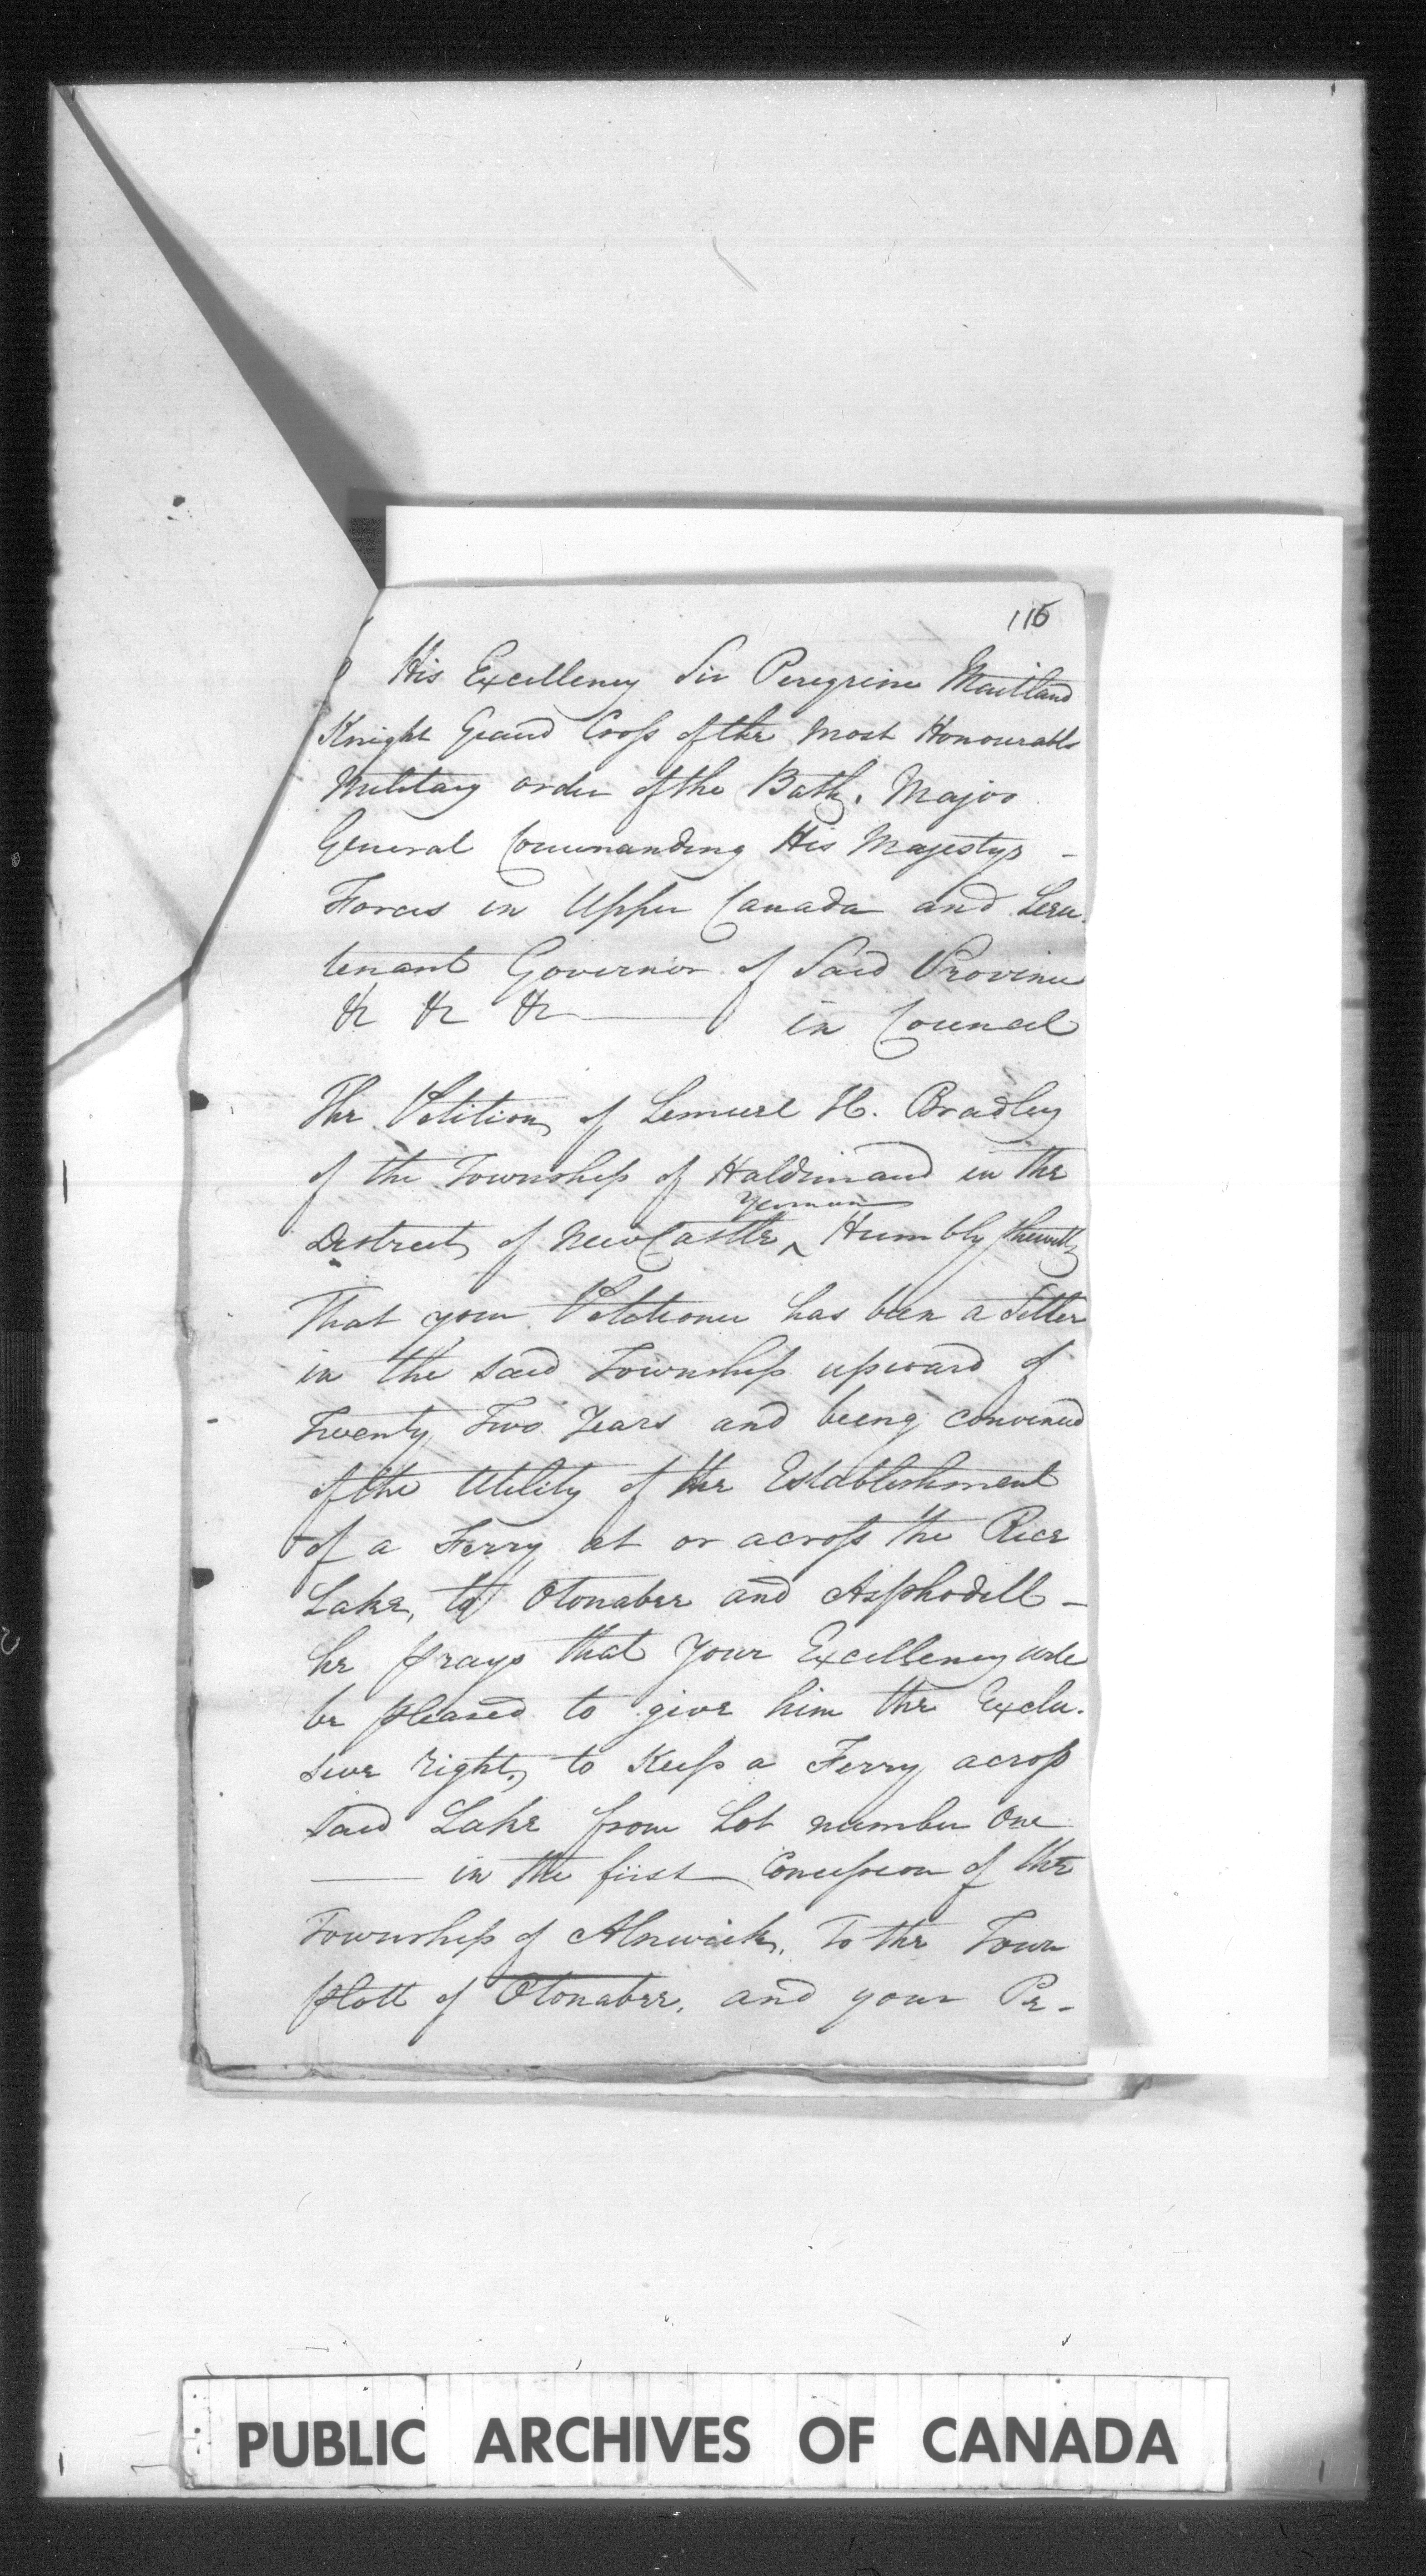 116
His Excellency Sir Peregrine Maitland
Knight Grand Cross of the Most Honourable
Military order of the Bath, Major
General Commanding His Majestys -
Forces in Upper Canada and Lieu-
tenant Governor of Said Province
&c &c &c in Council
The Petition of Lemuel H. Bradley
of the Township of Haldimand in the
yeoman
District of NewCastle ^ Humbly sheweth
That your Petitioner has been a Settler
in the said Township upward of
Twenty Two Years and being convinced
of the Utility of the Establishment
of a Ferry at or across the Rice
Lake, to Otonabee and Asphodell -
he prays that Your Excellency will
be pleased to give him the Exclu-
sive right, to Keep a Ferry across
said Lake from Lot number One
in the first Concession of the
Township of Alnwick, To the Town
plott of Otonabee, and your Pe-
PUBLIC ARCHIVES OF CANADA